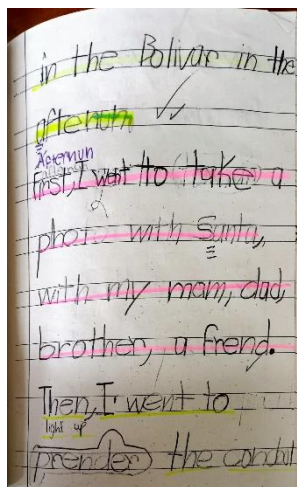 in the Bolivar in the
afternun
Afternun
first, I want to take a
photo with Santa,
with my mam, dad,
brother, a frend.
Then, I went to
light up
prender the conduit